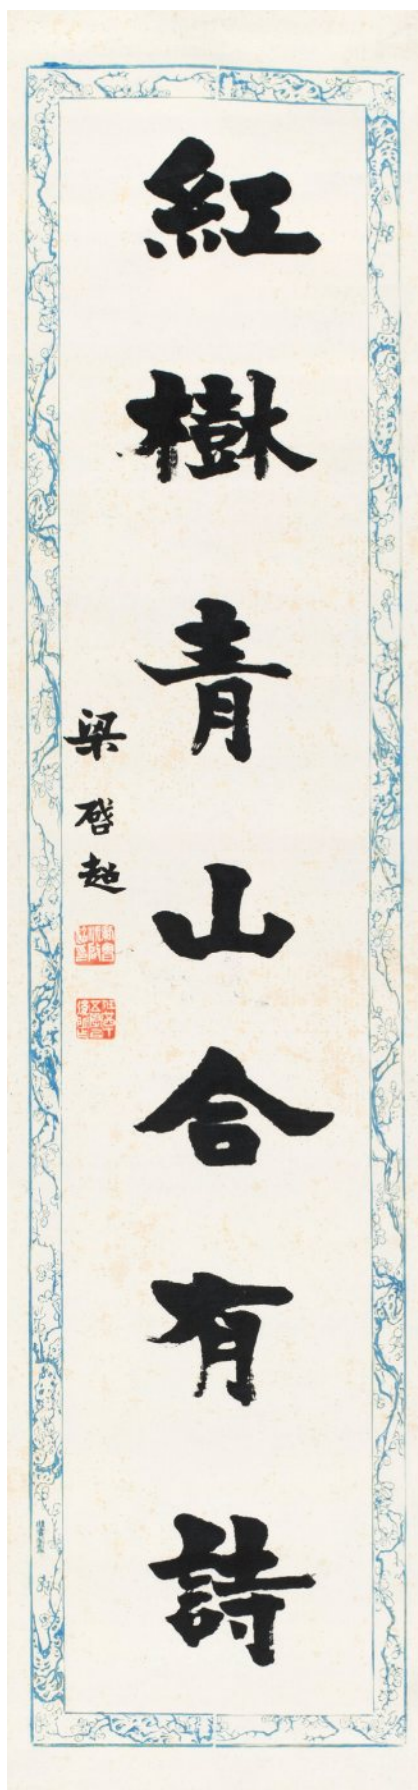 紅樹青山合有詩
梁啓超